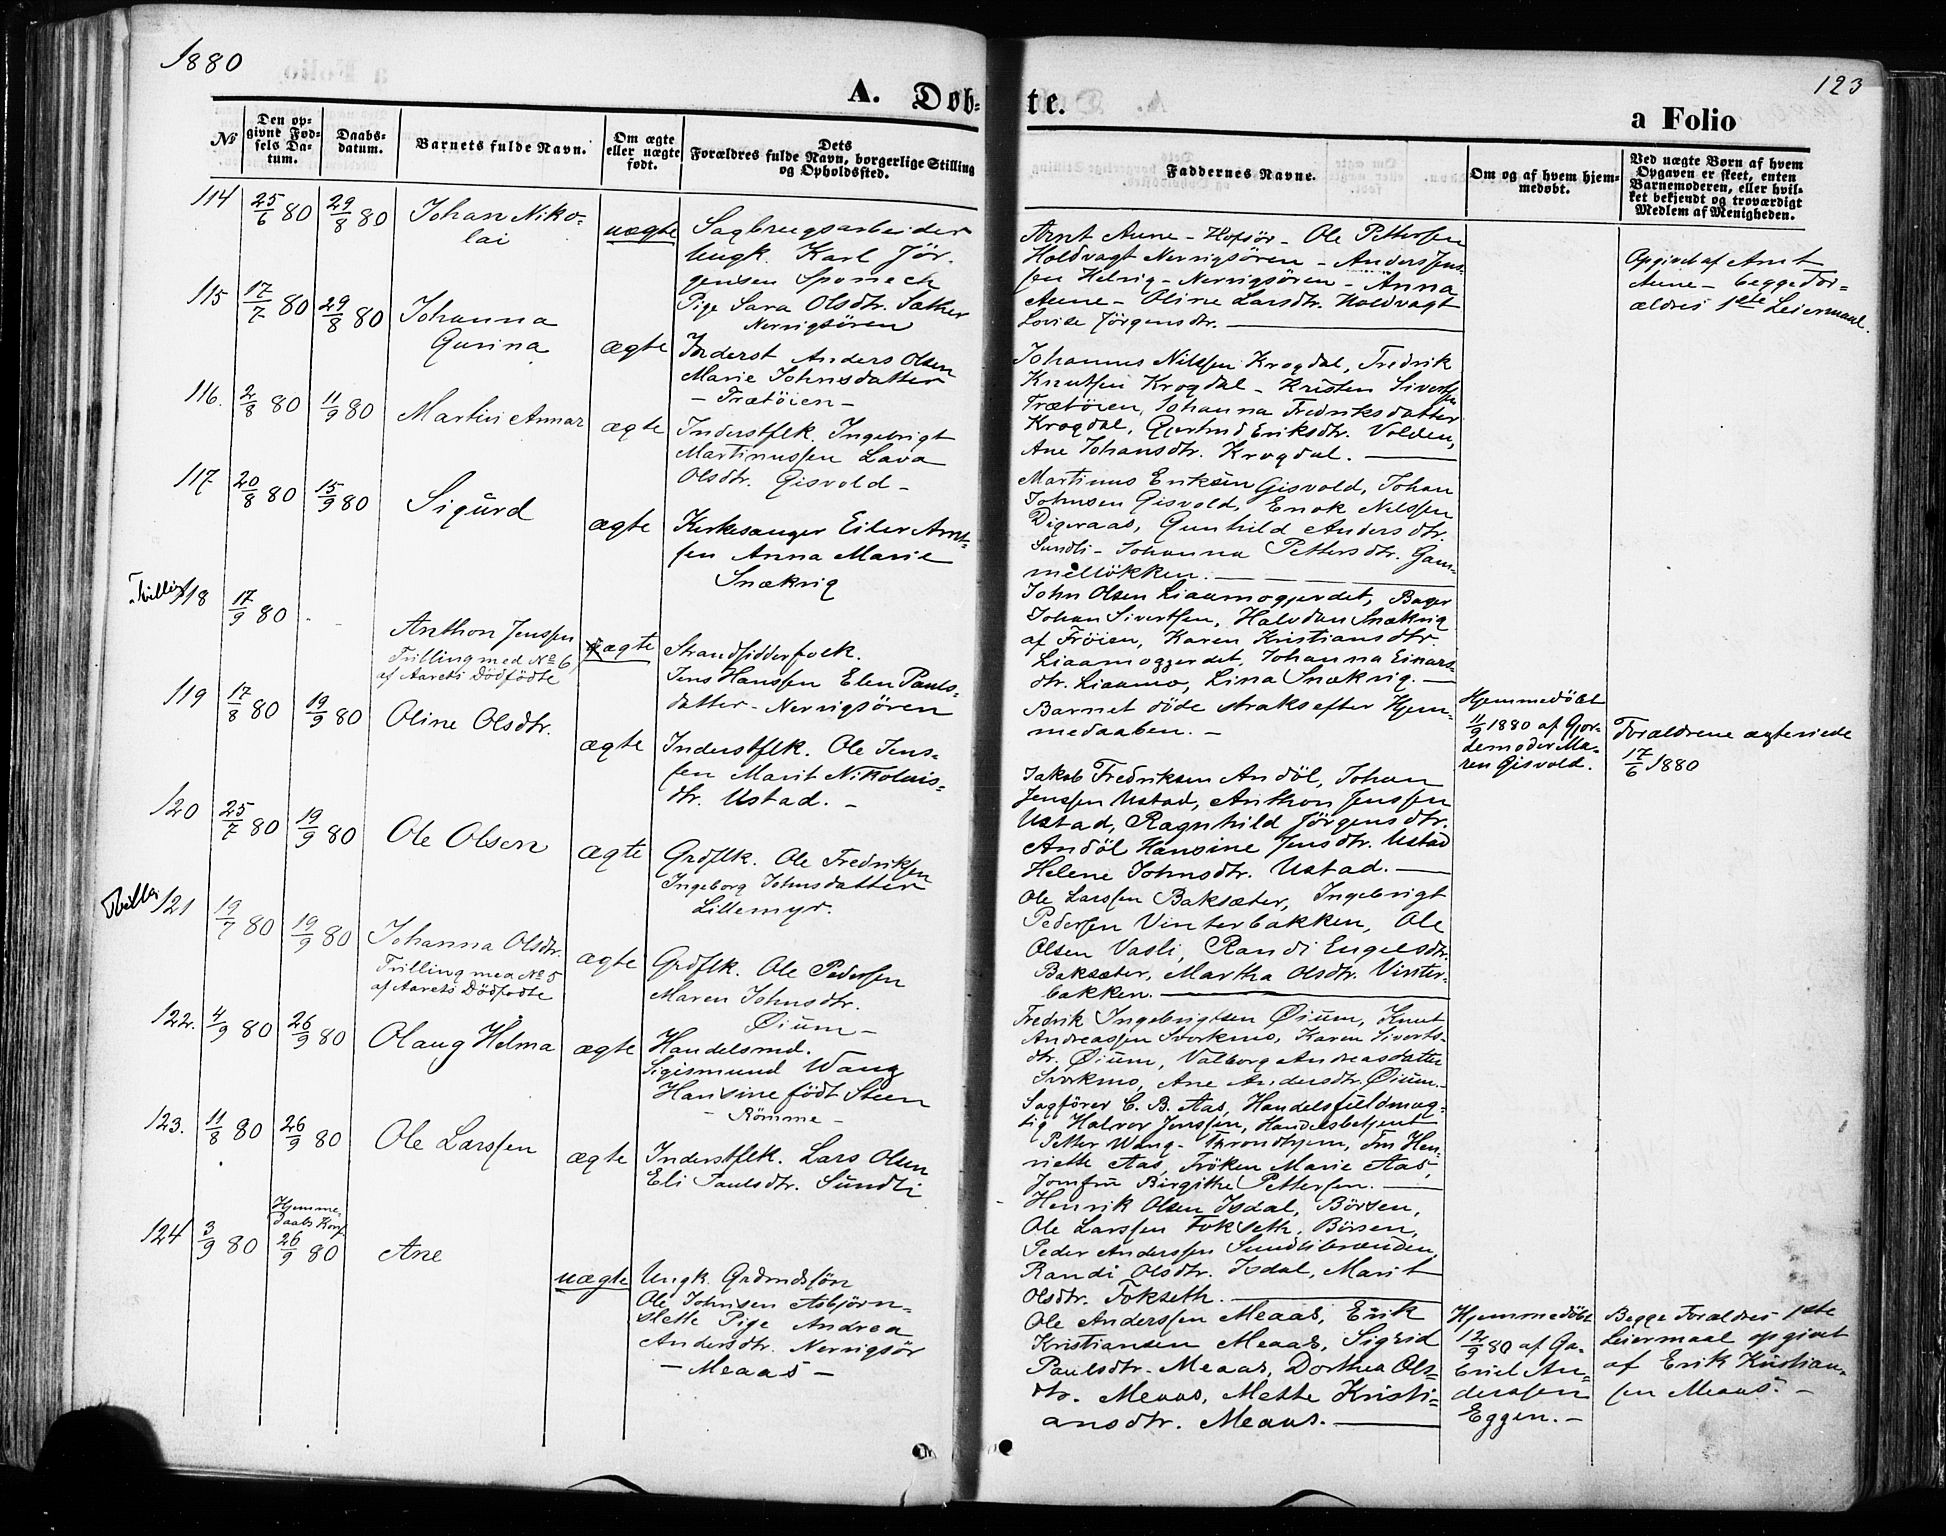 1880
123
A. Døb-
te.
a Folio
No
Den op-
givne Fød-
sels Da-
tum.
Daabs-
datum.
Barnets fulde Navn.
Om ægte
eller uægte
født.
Dets
Forældres fulde Navn, borgerlige Stilling
og Opholdssted.
Faddernes Navne.
Om og af hvem hjem-
medøbt.
Ved uægte Børn af hvem
Opgaven er skeet, enten
Barnemoderen, eller hvil-
ket bekjendt og troværdigt
Medlem af Menigheden.
114
25/6 80
29/8 80
Johan Niko-
lai
uægte
Sagbrugsarbeider
Ungk. Karl Jör-
gensen Sponech
Pige Sara Olsdtr. Sæther
Nervigsören
Arnt Aune - Hofsör - Ole Pettersen
Holdvagt Nervigsören - Anders Jens-
sen Helvig - Nervigsören - Anna
Aune - Oline Larsdtr. Holdvagt
Lovise Jörgensdtr.
Opgivet af Arnt
Aune - begge For-
ældres 1ste Leiermaal.
115
17/7 80
29/8 80
Johanna
Gurina
ægte
Inderst Anders Olsen
Marie Johnsdatter
- Trætöien -
Johannes Nilssen Krogdal, Fredrik
Knutsen Krogdal - Kristen Sivertsen
Trætöien, Johanna Fredriksdatter
Krogdal, Gjertrud Eriksdtr. Volden,
Ane Johansdtr. Krogdal.
116.
2/8 80
11/9 80
Martin Annar
ægte
Inderstflk. Ingebrigt
Martinussen Lava
Olsdtr. Gisvold -
Martinus Eriksen Gisvold, Johan
Johnsen Gisvold, Enok Nilssen
Digeraas, Gunhild Andersdtr.
Sundli - Johanna Pettersdtr. Gam-
mellökken.
117
20/8 80
15/9 80
Sigurd
ægte
Kirkesanger Eiler Arnt-
sen Anna Marie
Snækvig
John Olsen Liaamogjerdet, Bager
Johan Sivertsen, Halvdan Snækvig
af Fröien, Karen Kristiansdtr.
Liaamogjerdet, Johanna Einars-
dtr. Liaamo, Lina Snækvig.
118
17/9 80
Anthon Jenssen
Trilling med No 6
af Aarets Dödfödte
ægte
Strandsidderfolk.
Jens Hanssen Elen Pauls-
datter - Nervigsören
Barnet döde straks efter Hjem-
medaaben. -
Hjemmedöbt
11/9 1880 af Gjor-
demoder Ma-
ren Gisvold.
Forældrene ægteviede
17/6 1880
119
17/8 80
19/9 80
Oline Olsdtr.
ægte
Inderstflk. Ole Jens-
sen Marit Nikolais-
dtr. Ustad. -
Jakob Fredriksen Andöl, Johan
Jenssen Ustad, Anthon Jenssen
Ustad, Ragnhild Jörgensdtr.
Andöl Hansine Jensdtr. Ustad
Helene Johnsdtr. Ustad.
120
25/7 80
19/9 80
Ole Olsen
ægte
Grdflk. Ole Fredriksen
Ingeborg Johnsdatter
Lillemyr.
Ole Larssen Baksæter, Ingebrigt
Pedersen Vinterbakken, Ole
Olsen Vasli, Randi Engelsdtr.
Baksæter, Martha Olsdtr. Vinter-
bakken.
121
19/7 80
19/9 80
Johanna Olsdtr.
Trilling med No 5
af Aarets Dödfødte
ægte
Grdflk. Ole Pedersen
Maren Johnsdtr.
Øium -
Fredrik Ingebrigtsen Øium, Knut
Andreassen Svorkmo, Karen Siverts-
dtr. Øium, Valborg Andreasdatter
Svorkmo, Ane Andersdtr. Øium.
122.
4/9 80
26/9 80
Olaug Helma
ægte
Handelsmd.
Sigismund Wang
Hansine födt Steen
- Römme -
Sagförer C. B. Aas, Handelsfuldmæg-
tig Halvor Jenssen, Handelsbetjent
Petter Wang - Throndhjem, Fru Hen-
riette Aas, Fröken Marie Aas,
Jomfru Birgitte Pettersen.
123.
11/8 80
26/9 80
Ole Larssen
ægte
Inderstflk. Lars Olsen
Eli Paulsdtr. Sundli
Henrik Olsen Isdal, Börsen,
Ole Larssen Fokseth, Börsen,
Peder Anderssen Sundlibrænden,
Randi Olsdtr. Isdal, Marit
Olsdtr. Fokseth.
124
3/9 80
Hjemme-
daabs Konf.
26/9 80
Ane
uægte
Ungk. Grdmdsön
Ole Johnsen Asbjörn-
slette Pige Andrea
Andersdtr. Nervigsör
- Meaas -
Ole Anderssen Meaas, Erik
Kristiansen Meaas, Sigrid
Paulsdtr. Meaas, Dorthea Ols-
dtr. Meaas, Mette Kristi-
ansdtr. Meaas.
Hjemmedöbt
12/9 80 af Ga-
briel An-
dersen
Eggen. -
Begge Forældres 1ste
Leiermaal opgivet
af Erik Kristian-
sen Meaas. -